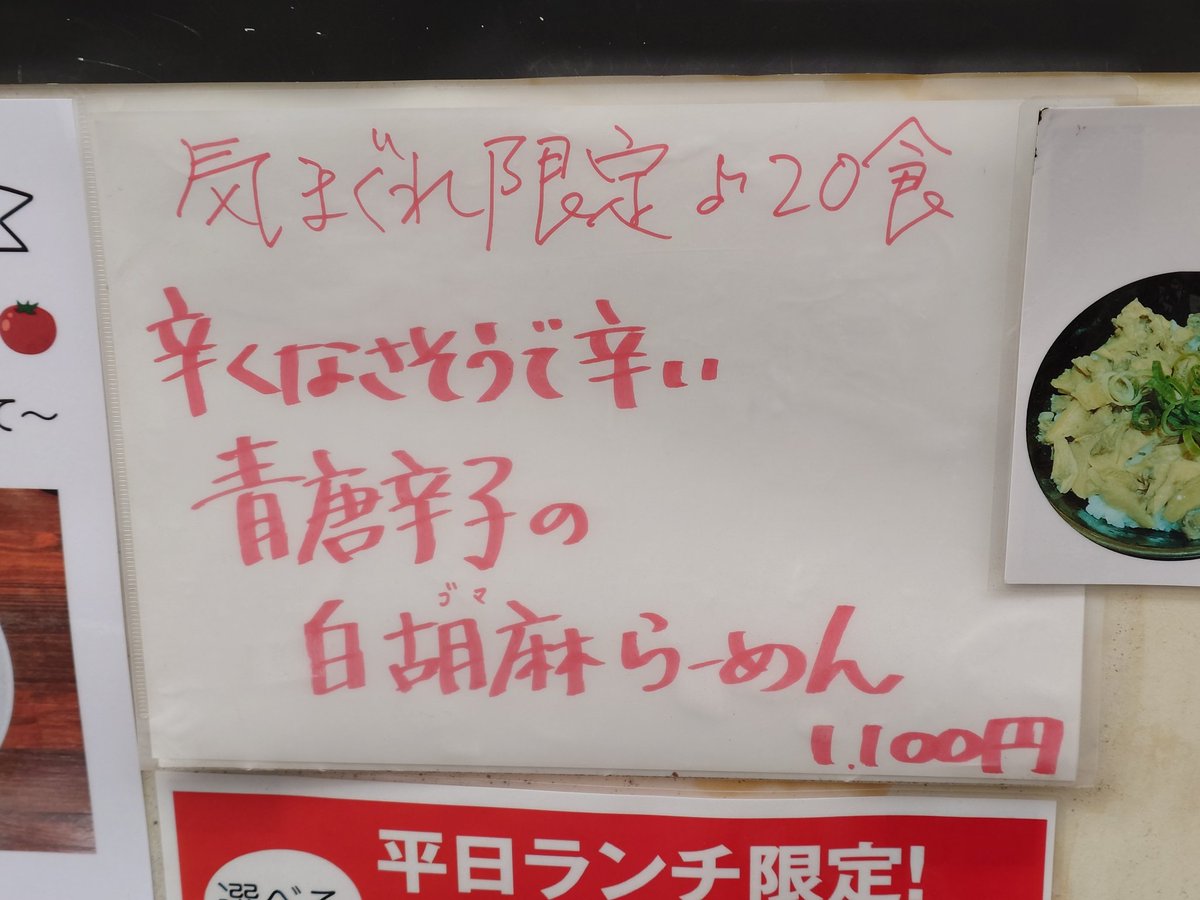 気まぐれ限定♪20食
辛くなさそうで辛い
青唐辛子の
ゴマ
白胡麻らーめん
1.100円
て〜
平日ランチ限定!